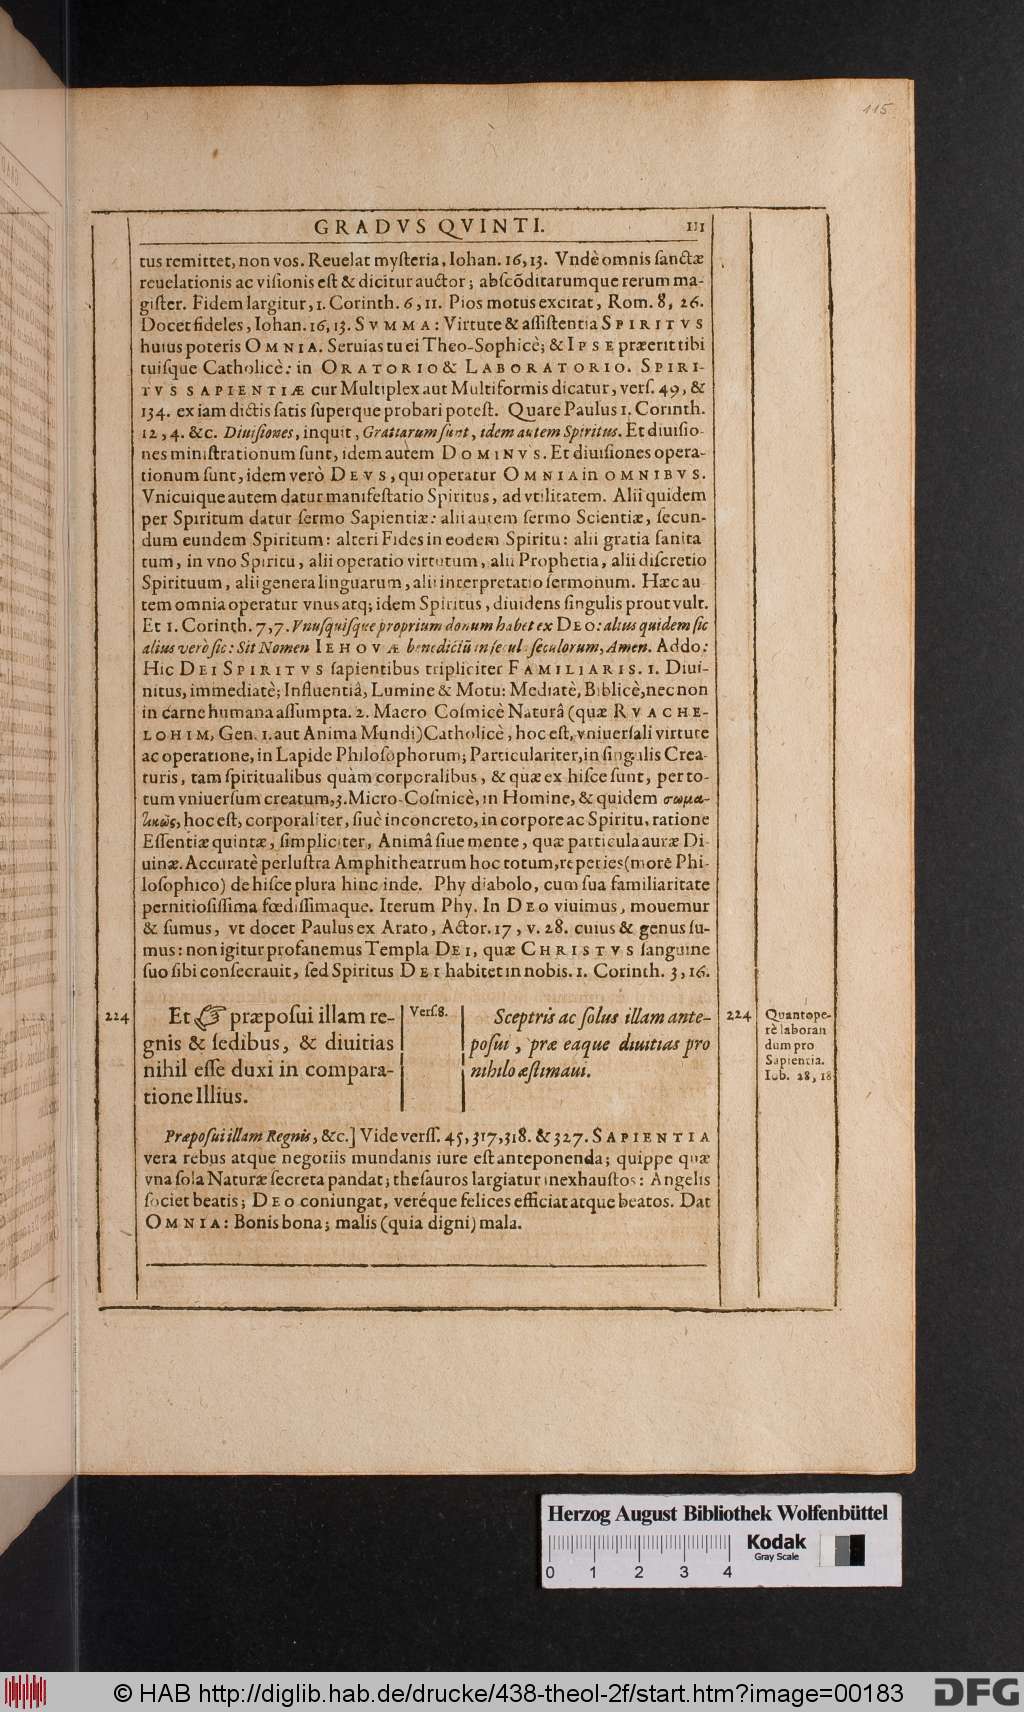 115
GRADVS QVINTI. 111
tus remittet, non vos. Reuelat mysteria, Iohan. 16, 13. Vndè omnis sanctæ
reuelationis ac visionis est & dicitur auctor; abscõditarumque rerum ma-
gister. Fidem largitur, 1. Corinth. 6, 11. Pios motus excitat, Rom. 8, 26.
Docet fideles, Iohan. 16, 13. SVMMA: Virtute & assistentia SPIRITVS
huius poteris OMNIA. Seruias tu ei Theo-Sophicè; & IPSE præerit tibi
tuisque Catholicè: in ORATORIO & LABORATORIO. SPIRI-
TVS SAPIENTIÆ cur Multiplex aut Multiformis dicatur, vers. 49, &
134. ex iam dictis satis superque probari potest. Quare Paulus 1. Corinth.
12, 4. &c. Diuisiones, inquit, Gratiarum sunt, idem autem Spiritus. Et diuisio-
nes ministrationum sunt, idem autem DOMINVS. Et diuisiones opera-
tionum sunt, idem verò DEVS, qui operatur OMNIA in OMNIBVS.
Vnicuique autem datur manifestatio Spiritus, ad vtilitatem. Alii quidem
per Spiritum datur sermo Sapientiæ: alii autem sermo Scientiæ, secun-
dum eundem Spiritum: alteri Fides in eodem Spiritu: alii gratia sanita
tum, in vno Spiritu, alii operatio virtutum, alii Prophetia, alii discretio
Spirituum, alii genera linguarum, alii interpretatio sermonum. Hæc au
tem omnia operatur vnus atq; idem Spiritus, diuidens singulis prout vult.
Et 1. Corinth. 7, 7. Vnusquisque proprium donum habet ex DEO: alius quidem sic
alius verò sic: Sit Nomen IEHOVÆ benedictũ in secula seculorum, Amen. Addo:
Hic DEI SPIRITVS sapientibus tripliciter FAMILIARIS. 1. Diui-
nitus, immediatè; Influentiâ, Lumine & Motu: Mediatè, Biblicè, nec non
in carne humana assumpta. 2. Macro Cosmicè Naturâ (quæ RVACHE-
LOHIM, Gen. 1. aut Anima Mundi) Catholicè, hoc est, vniuersali virtute
ac operatione, in Lapide Philosophorum; Particulariter, in singulis Crea-
turis, tam spiritualibus quàm corporalibus, & quæ ex hisce sunt, per to-
tum vniuersum creatum, 3. Micro-Cosmicè, in Homine, & quidem σωμα-
τικῶς, hoc est, corporaliter, siuè inconcreto, in corpore ac Spiritu, ratione
Essentiæ quintæ, simpliciter, Animâ siue mente, quæ particula auræ Di-
uinæ. Accuratè perlustra Amphitheatrum hoc totum, reperies (more Phi-
losophico) de hisce plura hinc inde. Phy diabolo, cum sua familiaritate
pernitiosissima fœdissimaque. Iterum Phy. In DEO viuimus, mouemur
& sumus, vt docet Paulus ex Arato, Actor. 17, v. 28. cuius & genus su-
mus: non igitur profanemus Templa DEI, quæ CHRISTVS sanguine
suo sibi consecrauit, sed Spiritus DEI habitet in nobis. 1. Corinth. 3, 16.
224 Et ☞ præposui illam re-
gnis & sedibus, & diuitias
nihil esse duxi in compara-
tione Illius.
Vers. 8.
Sceptris ac solus illam ante-
posui, præ eaque diuitias pro
nihilo æstimaui.
224 Quantope-
rè laboran
dum pro
Sapientia.
Iob. 28, 18
Præposui illam Regnis, &c.] Vide verss. 45, 317, 318. & 327. SAPIENTIA
vera rebus atque negotiis mundanis iure est anteponenda; quippe quæ
vna sola Naturæ secreta pandat; thesauros largiatur inexhaustos: Angelis
societ beatis; DEO coniungat, veréque felices efficiat atque beatos. Dat
OMNIA: Bonis bona; malis (quia digni) mala.
Herzog August Bibliothek Wolfenbüttel
Kodak
Gray Scale
0 1 2 3 4
© HAB http://diglib.hab.de/drucke/438-theol-2f/start.htm?image=00183
DFG